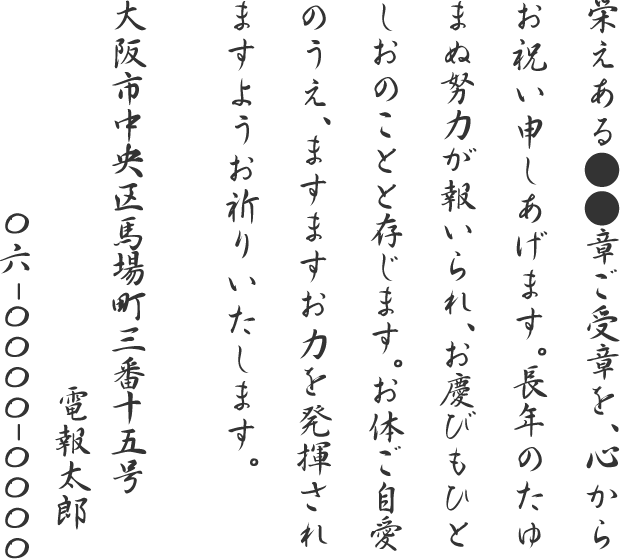 栄えある●●章ご受章を、心から
お祝い申しあげます。長年のたゆ
まぬ努力が報いられ、お慶びもひと
しおのことと存じます。お体ご自愛
のうえ、ますますお力を発揮され
ますようお祈りいたします。
大阪市中央区馬場町三番十五号
電報太郎
〇六ー〇〇〇〇ー〇〇〇〇